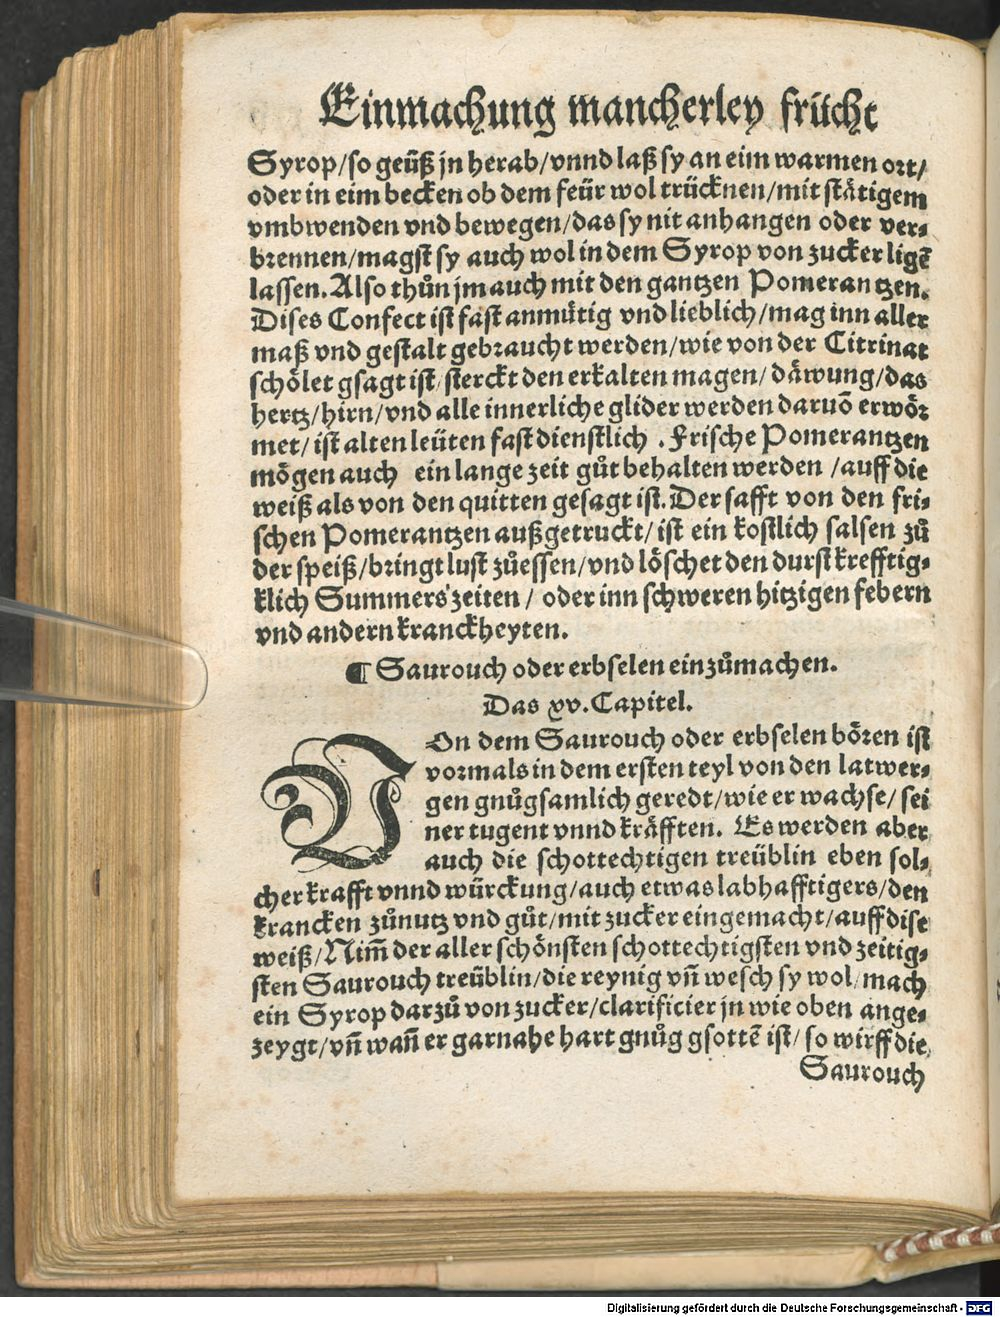 Einmachung mancherley frücht
Syrop/so geüß jn herab/vnnd laß sy an eim warmen ort/
oder in eim becken ob dem feür wol trücknen/mit stätigem
vmbwenden vnd bewegen/das sy nit anhangen oder ver⸗
brennen/magst sy auch wol in dem Syrop von zucker ligē
lassen. Also thůn jm auch mit den gantzen Pomerantzen.
Dises Confect ist fast anmütig vnd lieblich/mag inn aller
maß vnd gestalt gebraucht werden/wie von der Citrinat
schölet gsagt ist/sterckt den erkalten magen/däwung/das
hertz/hirn/vnd alle innerliche glider werden daruō erwör
met/ist alten leüten fast dienstlich. Frische Pomerantzen
mögen auch ein lange zeit gůt behalten werden/auff die
weiß als von den quitten gesagt ist. Der safft von den fri⸗
schen Pomerantzen außgetruckt/ist ein kostlich salsen zů
der speiß/bringt lust zůessen/vnd löschet den durst krefftig⸗
klich Summers zeiten/oder inn schweren hitzigen febern
vnd andern kranckheyten.
¶ Saurouch oder erbselen einzůmachen.
Das xv. Capitel.
VOn dem Saurouch oder erbselen bören ist
vormals in dem ersten teyl von den latwer⸗
gen gnůgsamlich geredt/wie er wachse/sei
ner tugent vnnd kräfften. Es werden aber
auch die schottechtigen treüblin eben sol⸗
cher krafft vnnd würckung/auch etwas labhafftigers/den
krancken zůnutz vnd gůt/mit zucker eingemacht/auff dise
weiß/Nim̄ der aller schönsten schottechtigsten vnd zeitig⸗
sten Saurouch treüblin/die reynig vn̄ wesch sy wol/mach
ein Syrop darzů von zucker/clarificier jn wie oben ange⸗
zeygt/vn̄ wan̄ er garnahe hart gnůg gsottē ist/so wirff die
Saurouch
Digitalisierung gefördert durch die Deutsche Forschungsgemeinschaft - DFG